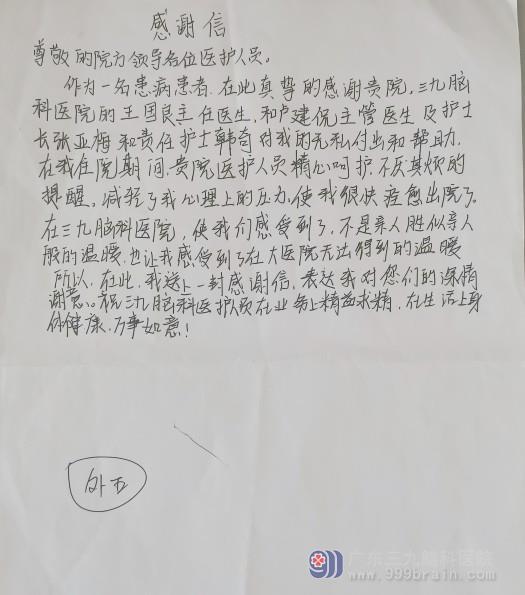 感谢信
尊敬的院方领导各位医护人员。
作为一名患病患者.在此真挚的感谢贵院.三九脑
科医院的王国良主任医生.和卢建侃主管医生及护士
长张亚梅和责任护士韩奇对我的无私付出和帮助.
在我住院期间.贵院医护人员精心呵护.不厌其烦的
提醒.减轻了我心理上的压力.使我很快痊愈出院了.
在三九脑科医院.使我们感受到了.不是亲人胜似亲人
般的温暖.也让我感受到了在大医院无法得到的温暖
所以.在此.我送上一封感谢信.表达我对您们的深情
谢意.祝三九脑科医护员在业务上精益求精.在生活上身
体健康.万事如意!
外五
广东三九脑科医院
www.999brain.com